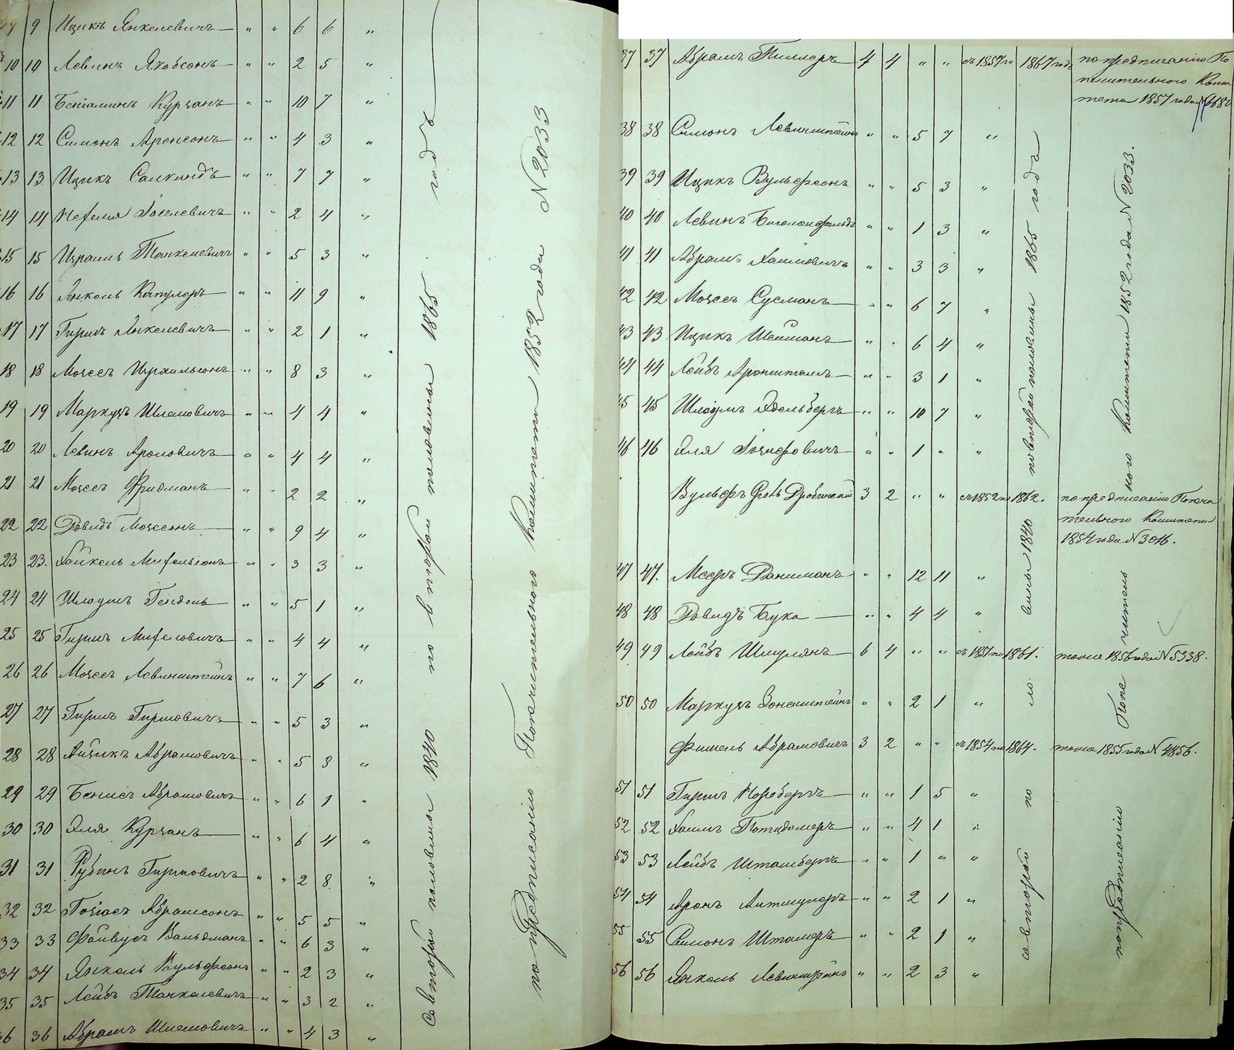 9 9 Ицикъ Янкелевичъ " " 6 6 "
10 10 Левинъ Якобсонъ " " 2 5 "
11 11 Беніаминъ Курцанъ " " 10 7 "
12 12 Симонъ Аронсонъ " " 4 3 "
13 13 Ицикъ Салкиндъ " " 7 7 "
14 14 " " 2 4 "
15 15 Израиль Танхелевичъ " " 5 3 "
16 16 Янкель " " 11 9 "
17 17 Гиршъ Янкелевичъ " " 2 1 "
18 18 Мовсес Израильсонъ " " 8 3 "
19 19 Маркусъ Шлемовичъ " " 4 4 "
20 20 Левинъ Ароновичъ " " 4 4 "
21 21 Мовсес Фридманъ " " 2 2 "
22 22 Давидъ Мовсесонъ " " 9 4 "
23 23. Хайкель " " 3 3 "
24 24 Шлоумъ " " 5 1 "
25 25 Гиршъ " " 4 4 "
26 26 Мовсес Левинштейнъ " " 7 6 "
27 27 Гиршъ Гиршовичъ " " 5 3 "
28 28 Айцикъ Абрамовичъ " " 5 8 "
29 29 Бенисъ Абрамовичъ " " 6 1 "
30 30 Эля Курцанъ " " 6 4 "
31 31 Рубинъ Гиршовичъ " " 2 8 "
32 32 Абрамсонъ " " 5 5 "
33 33 Файвусъ Вальдманъ " " 6 3 "
34 34 Янкель Вульфсонъ " " 2 3 "
35 35 Лейбъ Танхелевичъ " " 3 2 "
36 36 Абрамъ Шлемовичъ " " 4 3 "
со второй половины 1840 по второй половины 1865 годъ
по предписанію Попечительного Комитета 1852 года N 2033
37 37 Абрамъ Гиллеръ 4 4 " " съ 1857 по 1867 года по предписанію По
печительного Коми
тета 1857 года
38 38 Симонъ Левинштейнъ " " 5 7 "
39 39 Ицикъ Вульфсонъ " " 5 3 "
40 40 Левинъ " " 1 3 "
41 41 Абрамъ Хаимовичъ " " 3 3 "
42 42 Мовсес Сусманъ " " 6 7 "
43 43 Ицикъ Шейманъ " " 6 4 "
44 44 Лейбъ Аронштамъ " " 3 1 "
45 45 Шлоумъ Эдельбергъ " " 10 7 "
46 46 Эля Іосифовичъ " " 1 " "
Вульфъ 3 2 " " съ 1852 по 1862. по предписанію Попечи
тельного Комитета
1854 года N 3016.
47 47. Мееръ " " 12 11 "
48 48 Давидъ Бука " " 4 4 "
49 49 Лейбъ Шмулянъ 6 4 " " съ 1851 по 1861. тоже 1856 года N 5338.
50 50 Маркусъ Зоненштейнъ " " 2 1 "
Фишель Абрамовичъ 3 2 " " съ 1854 по 1864. тоже 1855 года N 4856.
51 51 Гиршъ " " 1 5 "
52 52 Хаимъ " " 4 1 "
53 53 Лейбъ Штамбергъ " " 1 " "
54 54 Аронъ " " 2 1 "
55 55 Симонъ Шталеръ " " 2 1 "
56 56 Янкель Левинштейнъ " " 2 3 "
со второй по 1840 по второй половины 1865 года
по предписанію Попечительного Комитета 1852 года N 2033.